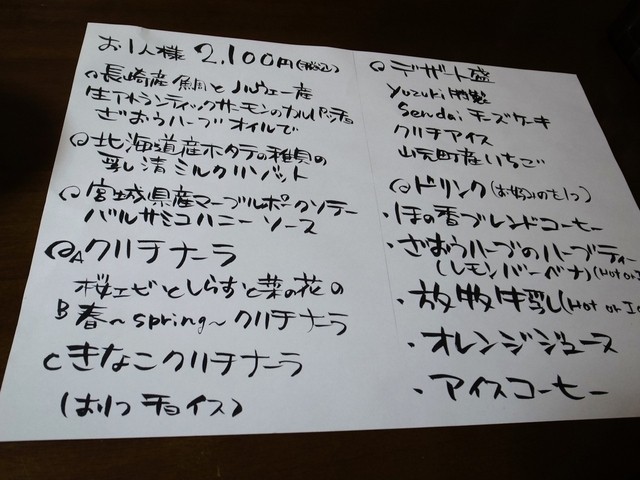 お1人様 2,100円(税込)
◎長崎産 鯛とノルウェー産
生アトランティックサーモンのカルパッチョ
ざおうハーブオイルで
◎北海道産ホタテの稚貝の
乳清ミルクリゾット
◎宮城県産マーブルポークソテー
バルサミコハニーソース
◎A クリチナーラ
桜エビとしらすと菜の花の
B 春～spring～クリチナーラ
C きなこクリチナーラ
(お1つチョイス)
◎デザート盛
yuzuki特製
Sendaiチーズケーキ
クリチアイス
山元町産いちご
◎ドリンク(お好みのを1つ)
・ほの香ブレンドコーヒー
・ざおうハーブのハーブティー
(レモンバーベナ)(Hot or I
・放牧牛乳(Hot or Ic
・オレンジジュース
・アイスコーヒー